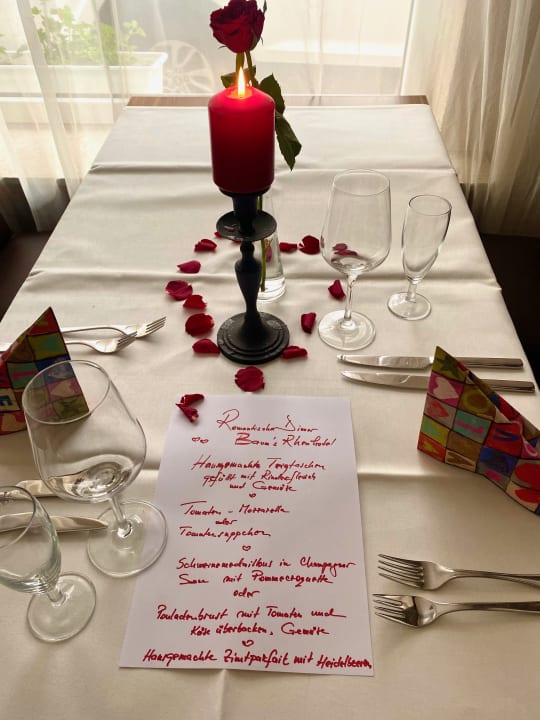 Romantisches Dinner
Baum's Rheinhotel
Hausgemachte Teigtaschen
gefüllt mit Rinderfleisch
und Gemüse
Tomaten - Mozzarella
oder
Tomatensüppchen
Schweinemedaillons in Champagner
Sauce mit Pommecroquette
oder
Pouladenbrust mit Tomaten und
Käse überbacken, Gemüse
Hausgemachte Zimtparfait mit Heidelbeeren